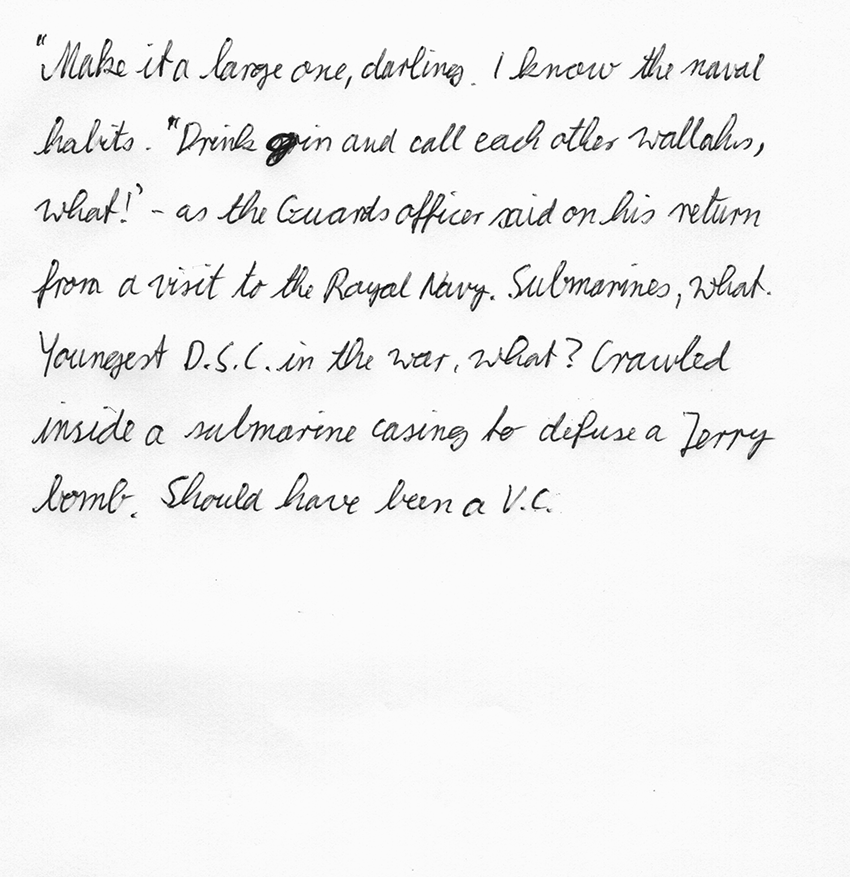 "Make it a large one, darling. I know the naval
habits. "Drink gin and call each other wallahs,
what!" - as the Guards officer said on his return
from a visit to the Royal Navy. Submarines, what.
Youngest D.S.C. in the war, what? Crawled
inside a submarine casing to defuse a Jerry
bomb. Should have been a V.C.